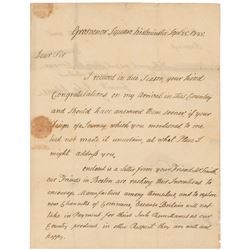 Grosvenor Square Westminster Sept. 15. 1785.
Dear Sir
I received in due Season, your kind
Congratulations on my Arrival in this Country
and should have answered them sooner, if your
design of a Journey which you mentioned to me
had not made it uncertain, at what Place I
might address you.
enclosed is a Letter from your Friend Mr Smith
our Friends in Boston are racking their Inventions to
encourage Manufactures among themselves and to explore
new Channels of Commerce because Britain will not
take in Payment for their such Remittances as our
Country produces in other Respects they are well and
happy.